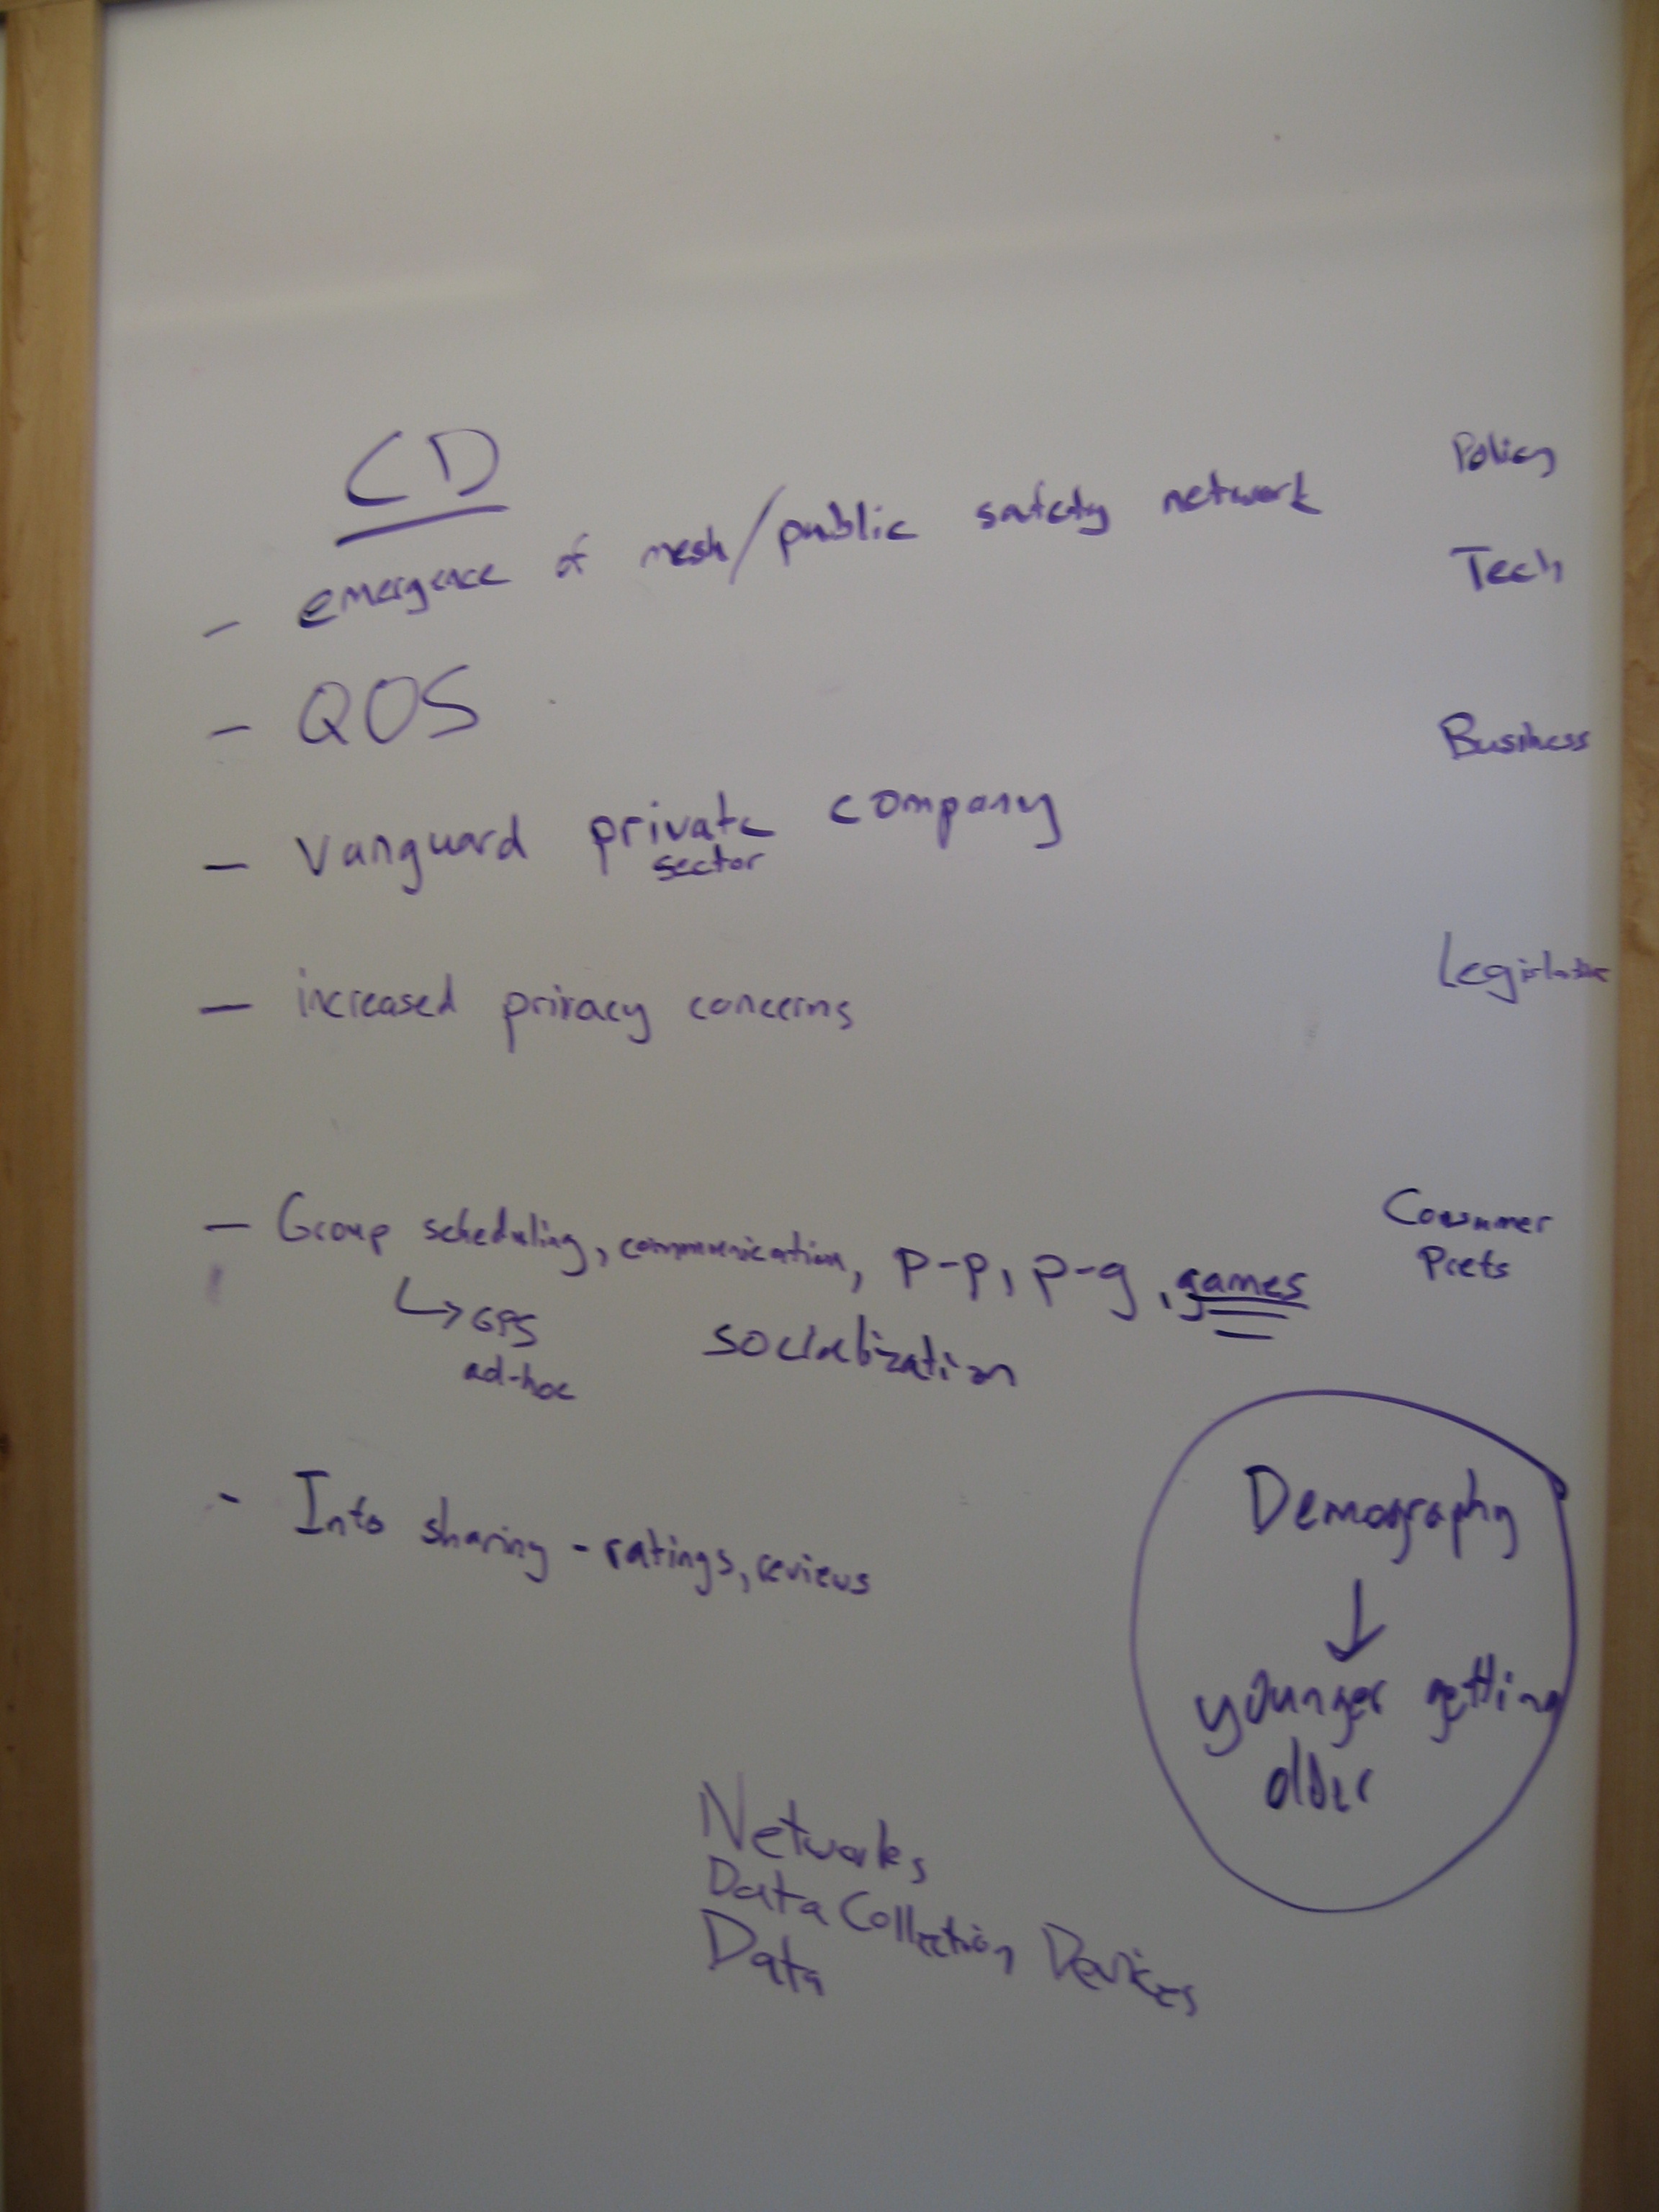 CD
- emergence of mesh/public safety network
Policy
Tech
- QOS
Business
- Vanguard private company
sector
- increased privacy concerns
Legislative
- Group scheduling, communication, p-p, p-g, games
Consumer
Prefs
↳ GPS
ad-hoc
socialization
- Info sharing - ratings, reviews
Demography
↓
younger getting
older
Networks
Data Collection Devices
Data